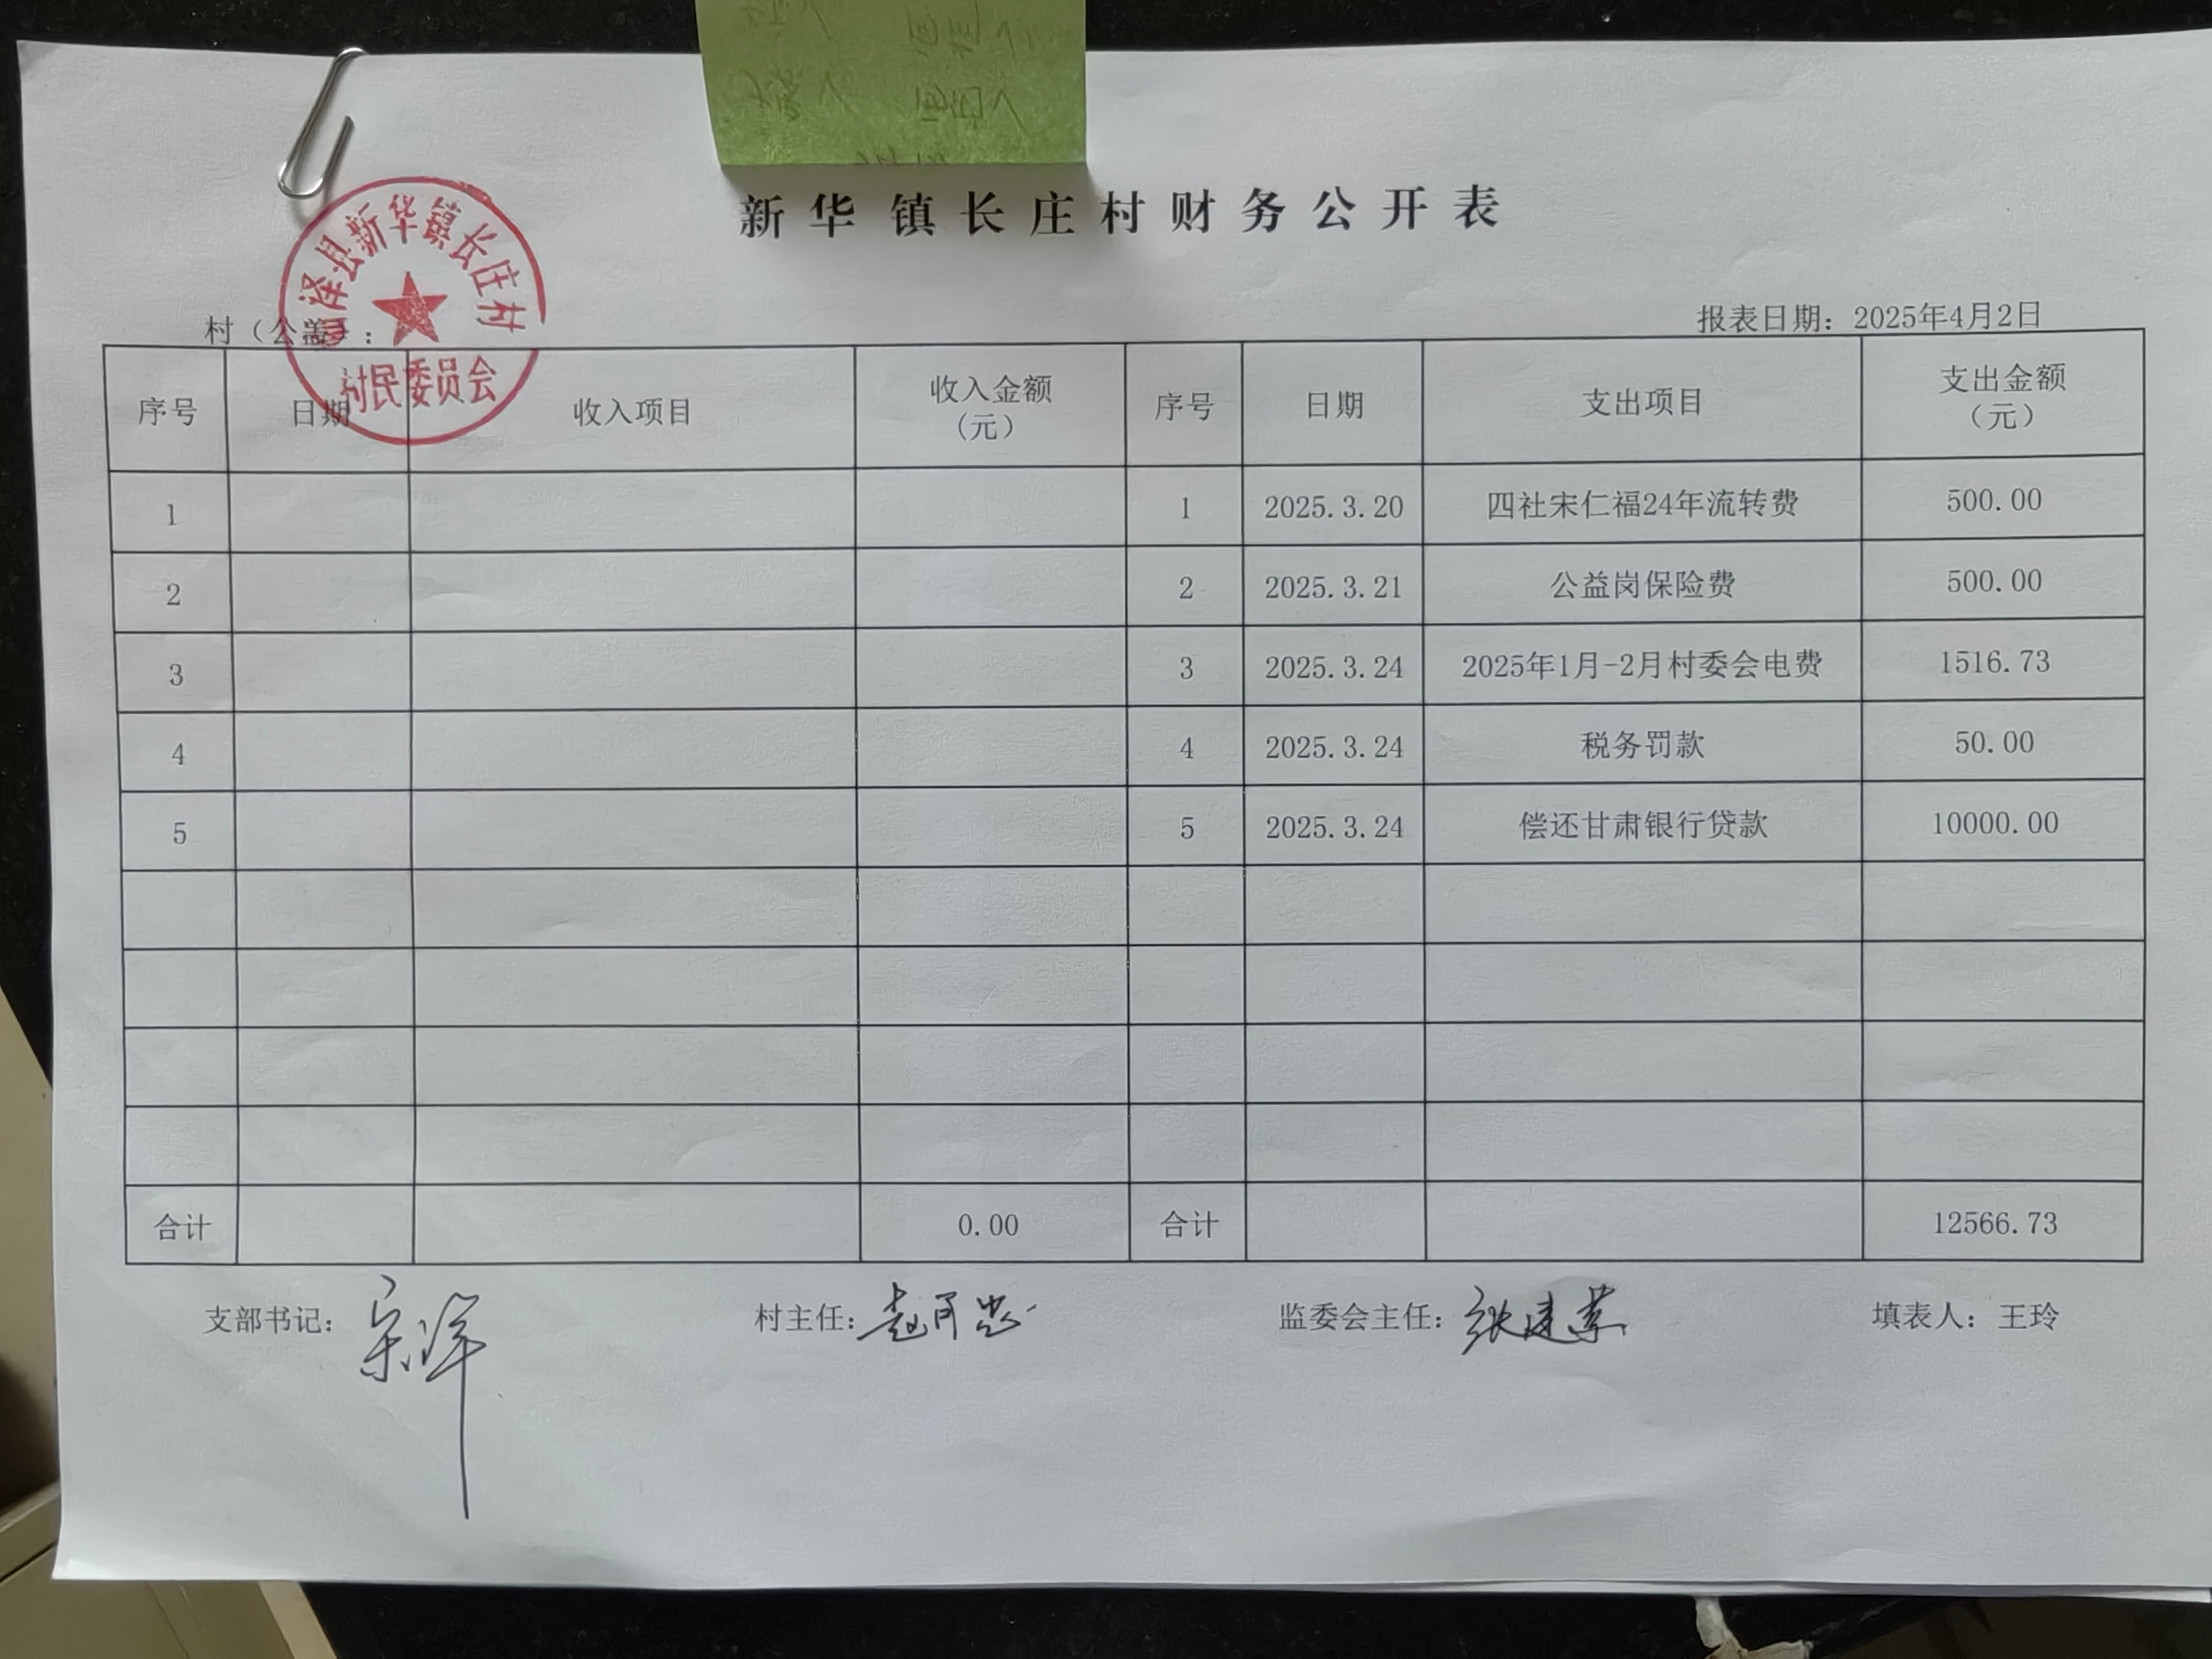 新华镇长庄村财务公开表
泽县新华镇长庄村
村民委员会
村（公盖）：
报表日期：2025年4月2日
序号 日期 收入项目 收入金额（元） 序号 日期 支出项目 支出金额（元）
1 1 2025.3.20 四社宋仁福24年流转费 500.00
2 2 2025.3.21 公益岗保险费 500.00
3 3 2025.3.24 2025年1月-2月村委会电费 1516.73
4 4 2025.3.24 税务罚款 50.00
5 5 2025.3.24 偿还甘肃银行贷款 10000.00
合计 0.00 合计 12566.73
支部书记： 村主任： 监委会主任： 填表人：王玲